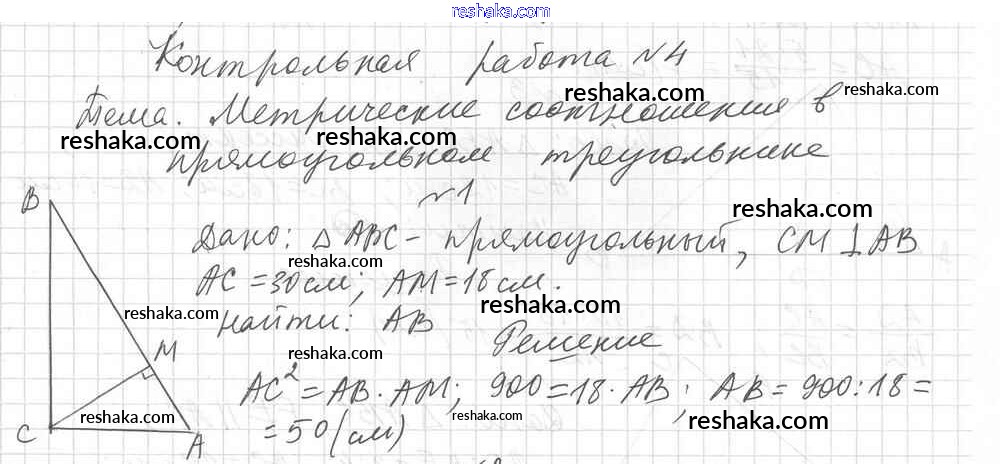 reshaka.com
Контрольная работа №4
Тема. Метрические соотношения в
прямоугольном треугольнике
№1
Дано: △ABC - прямоугольный, CM ⊥ AB
AC = 30 см; AM = 18 см.
Найти: AB
Решение
AC² = AB · AM; 900 = 18 · AB; AB = 900 : 18 =
= 50 (см)
B
M
C
A
reshaka.com
reshaka.com
reshaka.com
reshaka.com
reshaka.com
reshaka.com
reshaka.com
reshaka.com
reshaka.com
reshaka.com